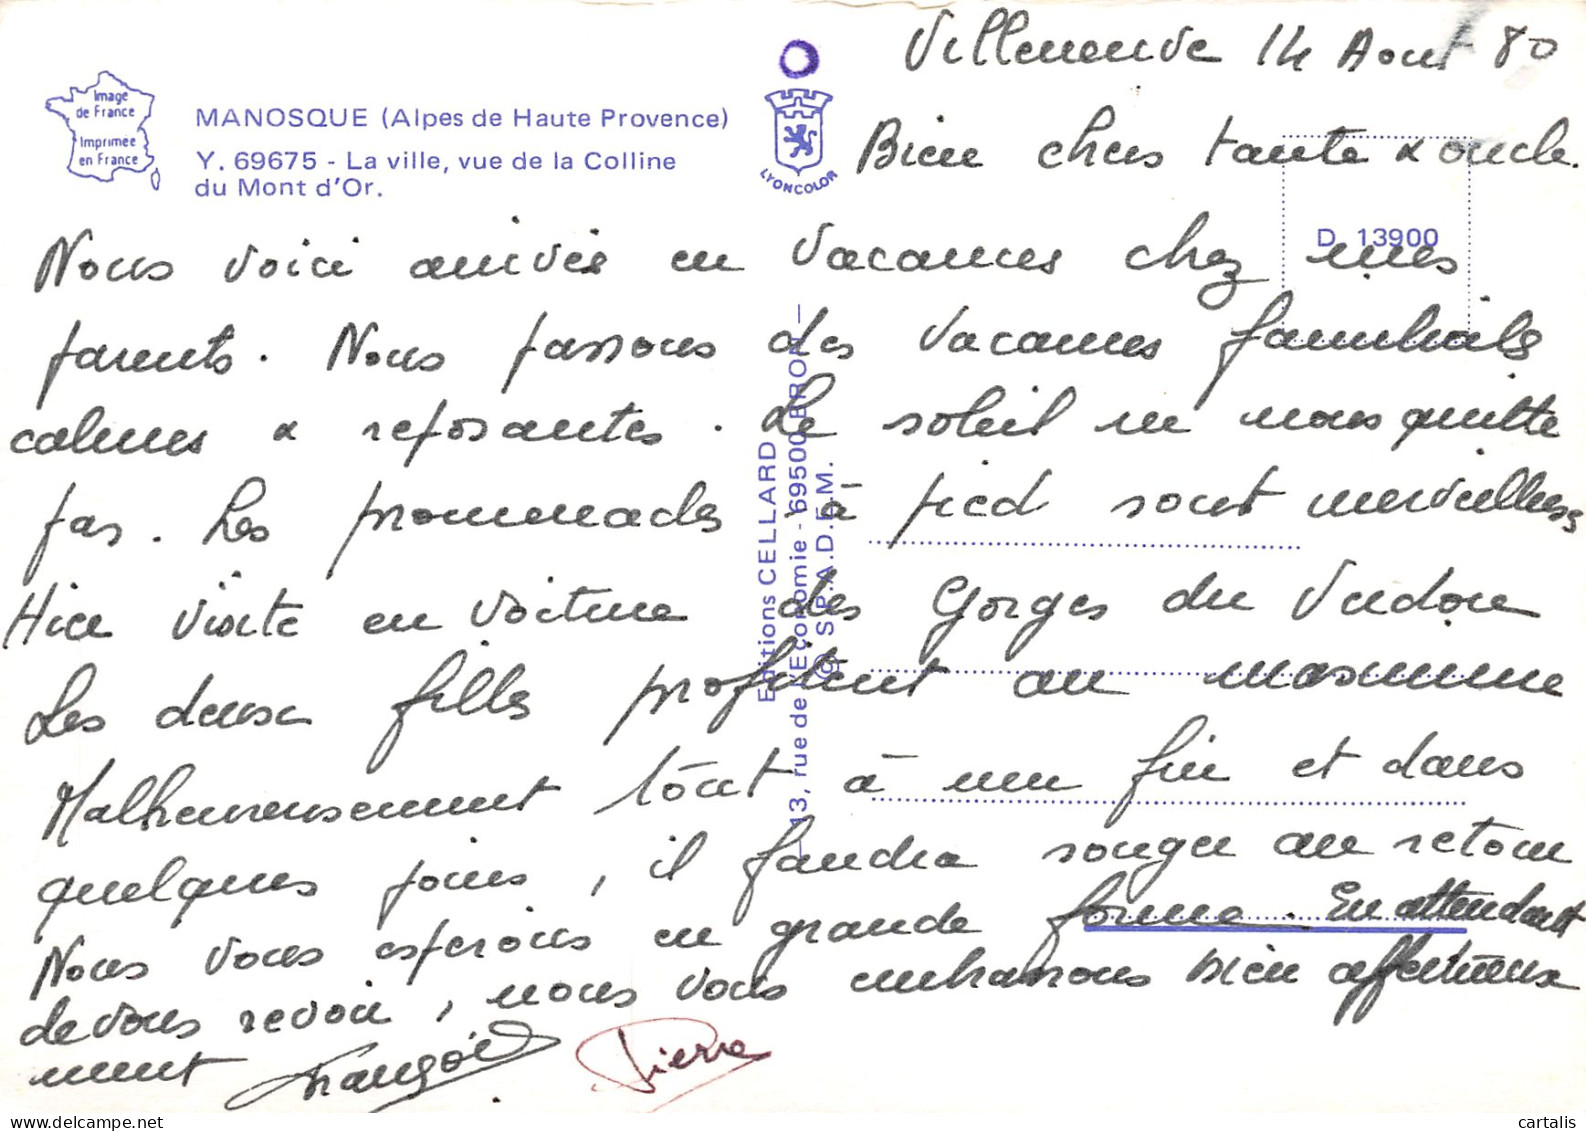 Image
de France
Imprimée
en France
MANOSQUE (Alpes de Haute Provence)
Y. 69675 - La ville, vue de la Colline
du Mont d'Or.
LYONCOLOR
D 13900
Editions CELLARD
13, rue de l'Economie - 69500 BRON
© S.P.A.D.E.M.
Villeneuve 14 Aout 80
Bien chers tante & oncle.
Nous voici arrivés en vacances chez mes
parents. Nous passons des vacances familiales
calmes & reposantes. Le soleil ne nous quitte
pas. Les promenades à pied sont merveilleuses
Hier visite en voiture des Gorges du Verdon
Les deux filles profitent au maximum
Malheureusement tout à une fin et dans
quelques jours, il faudra songer au retour
Nous vous espérons en grande forme. En attendant
de vous revoir, nous vous embrassons bien affectueuse
ment Françoise Pierre
cartalis